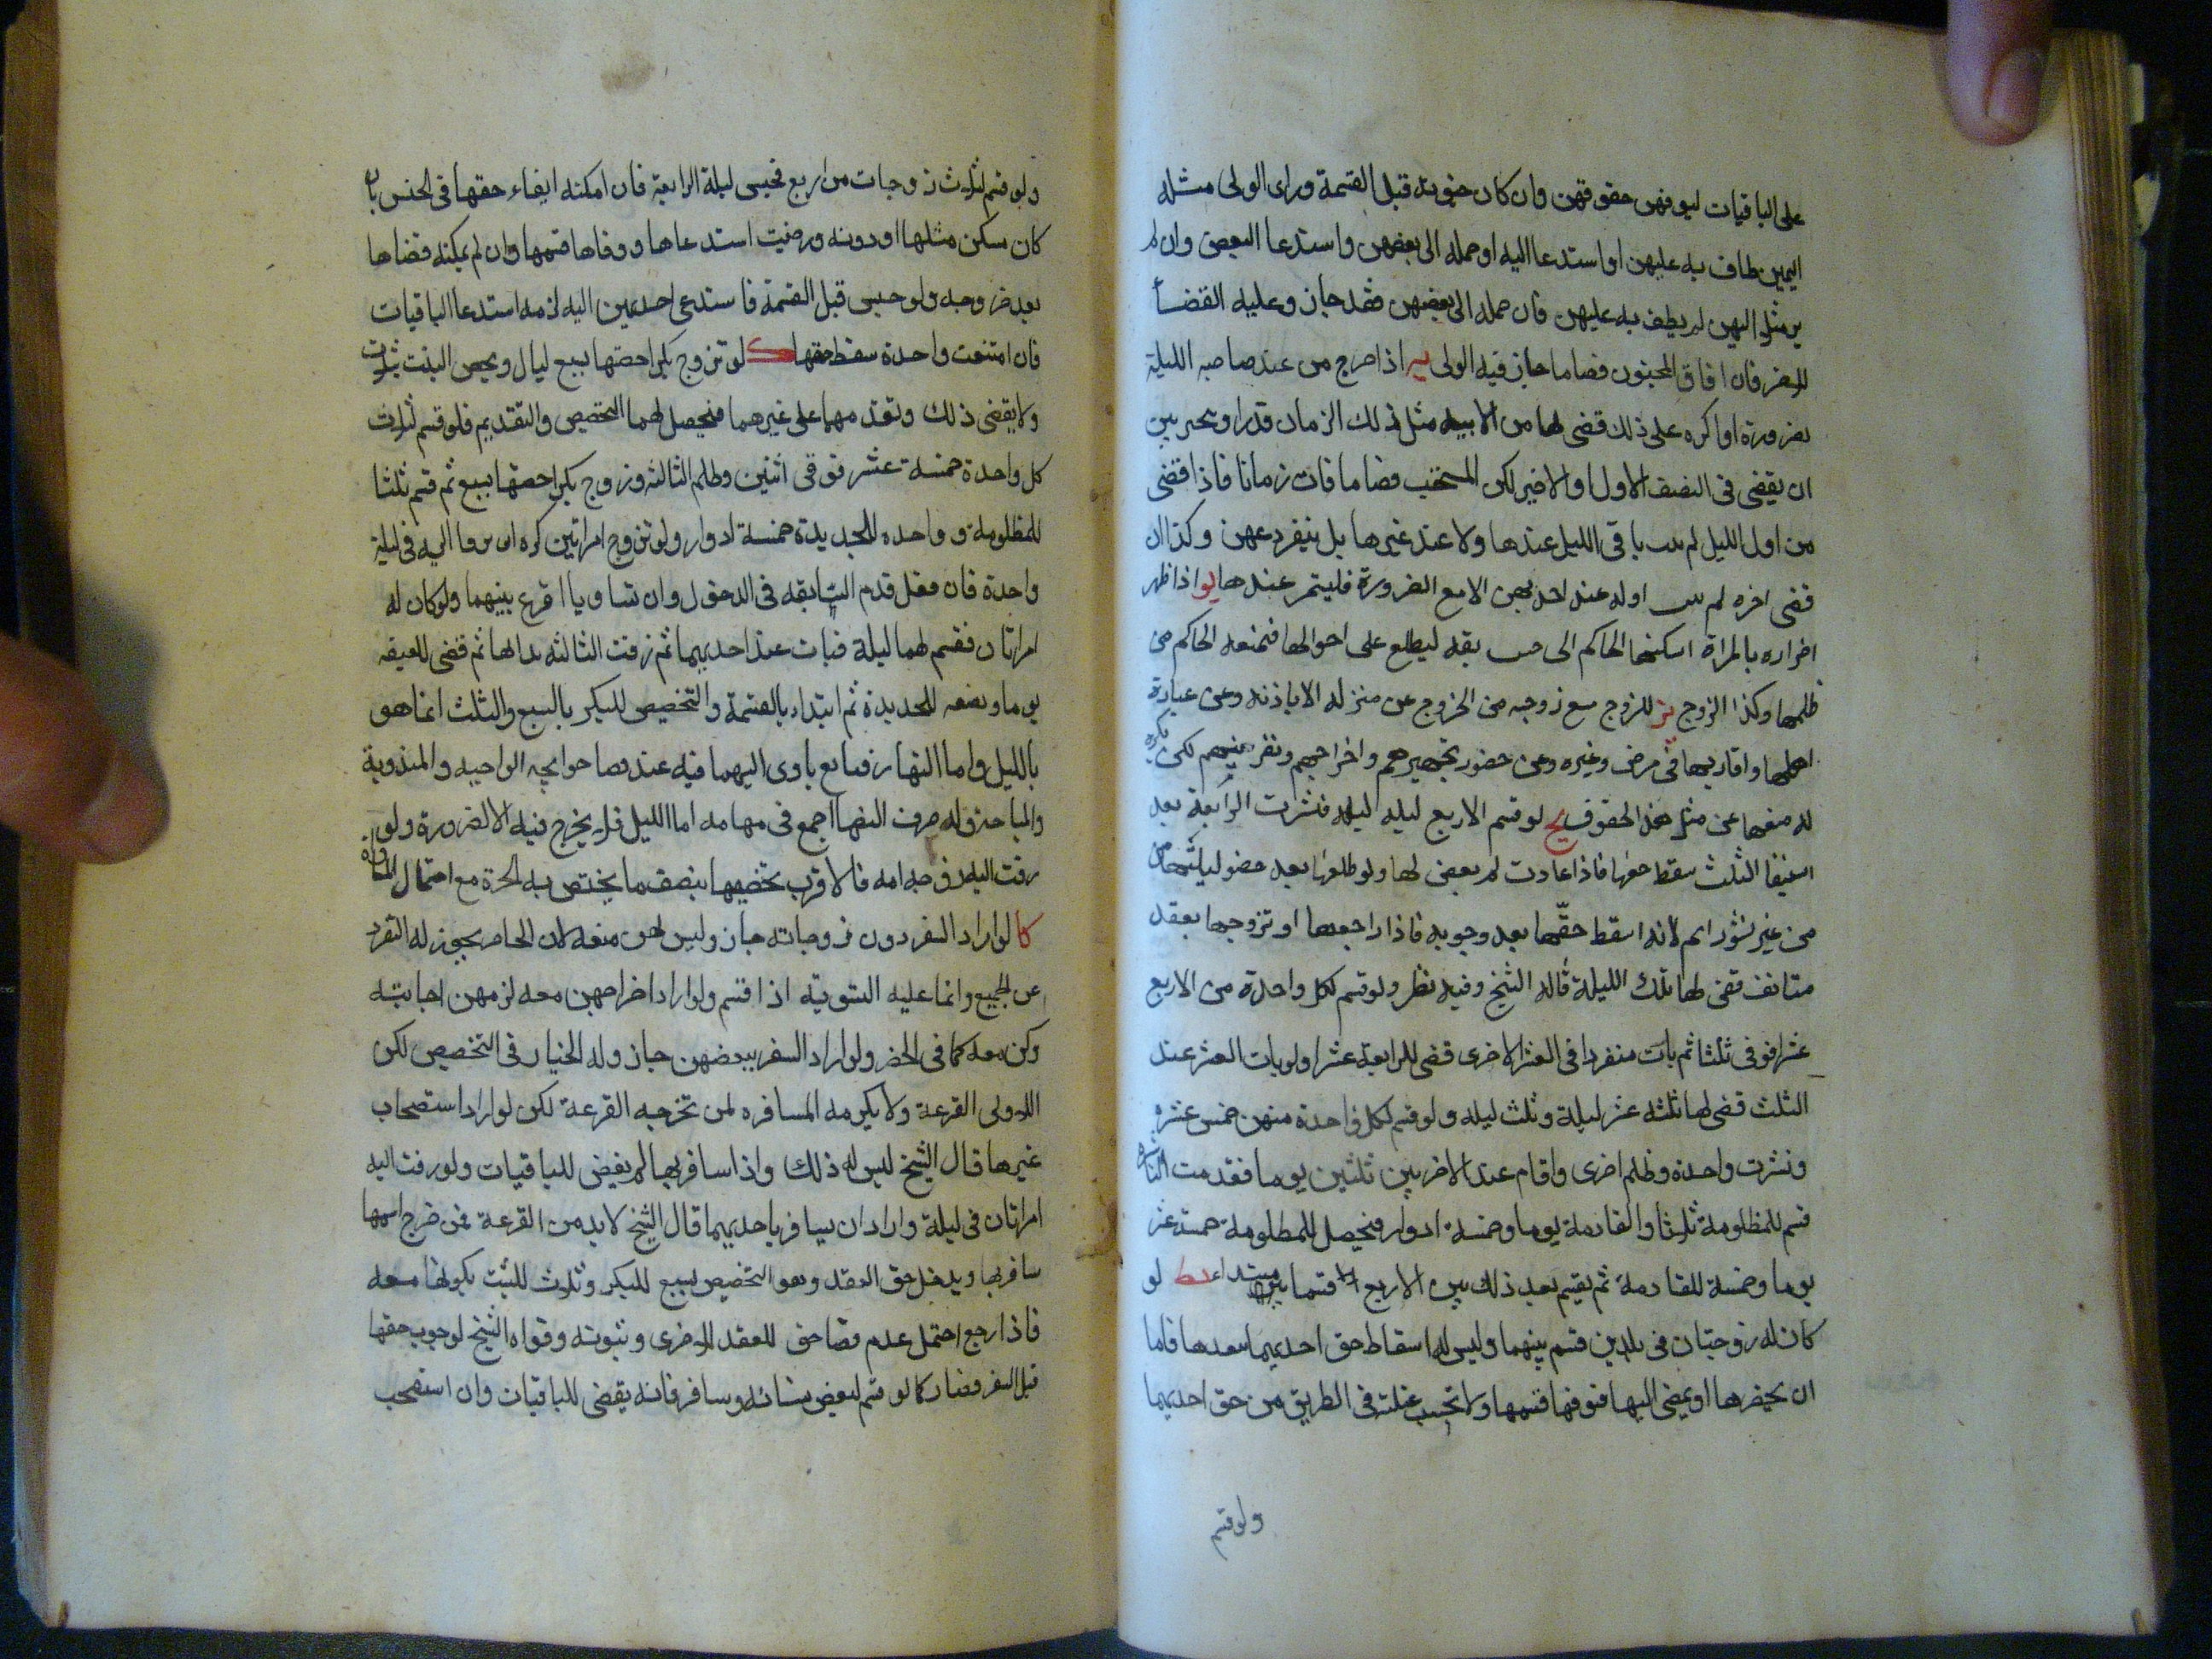 على الباقيات ليوفهن حقوقهن وان كان جنونه قبل القسمة وراى الولى مثله
اليهن طاف به عليهن او استدعا اليه او حمله الى بعضهن واستدعا البعض وان لم
ير مثله اليهن لم يطف به عليهن فان حمله الى بعضهن فقد جاز وعليه القضا
للبعض فان افاق المجنون قضا ما جاز فيه الولى يه اذا خرج من عند صاحبه الليلة
لضرورة او اكره على ذلك قضى لها من الليله مثل ذلك الزمان قدرا ويتخير بين
ان يقضى فى النصف الاول او الاخير لكن المستحب قضا ما فات زمانا فاذا قضى
من اول الليل لم يبت باقى الليل عندها ولا عند غيرها بل ينفرد عنهن وكذا ان
قضى اخره لم يبت اوله عند احديهن الا مع الضرورة فليتم عندها يو اذا ظهر
اضراره بالمراة اسكنها الحاكم الى جنب ثقه ليطلع على احوالها فيمنعه الحاكم من
ظلمها وكذا الزوج يز للزوج منع زوجته من الخروج عن منزله الا باذنه وعن عيادة
اهلها واقاربها فى مرض وغيره وعن حضور تجهيزهم واخراجهم وتعزيتهم لكن يكره
له منعها عن مثل هذه الحقوق يح لو قسم الاربع ليله ليله فنشزت الرابعة بعد
استيفا الثلث سقط حقها فاذا عادت لم يقض لها ولو طلقها بعد حضور ليلتها من
من غير نشوز اثم لانه اسقط حقها بعد وجوبه فاذا راجعها او تزوجها بعقد
مستانف قضى لها تلك الليلة قاله الشيخ وفيه نظر ولو قسم لكل واحدة من الاربع
عشرا فوفى ثلثا ثم بات منفردا فى العشر الاخرى قضى للرابعة عشرا ولو بات العشر عند
الثلث قضى لها ثلثه عشر ليلة وثلث ليله ولو قسم لكل واحدة منهن خمس عشره
ونشزت واحدة وظلم اخرى واقام عند الاخريين ثلثين يوما فقدمت الناشزه
قسم للمظلومة ثلاثا والقادمة يوما وخمسة ادوار فيحصل للمظلومة خمسة عشر
يوما وخمسة للقادمة ثم يقيم بعد ذلك بين الاربع قسما مبتداء يط لو
كان له زوجتان فى بلدين قسم بينهما وليس له اسقاط حق احديهما لبعدها فاما
ان يحضرها او يمضى اليها فيوفها قسمها ولا تحسب غيبته فى الطريق من حق احديهما
ولو قسم
ولو قسم لثلاث زوجات من اربع فحبس ليلة الرابعة فان امكنه ايفاء حقها فى الحبس بان
كان مسكن مثلها او دونه ورضيت استدعاها ووفاها قسمها وان لم يمكنه قضاها
بعد خروجه ولو حبس قبل القسمة فاستدعى احديهن اليه لزمه استدعا الباقيات
فان امتنعت واحدة سقط حقها ك لو تزوج بكرا خصها بسبع ليال ويخص الثيت بثلاث
ولا يقضى ذلك وتقدمهما على غيرهما فيحصل لهما التخصيص والتقديم فلو قسم لثلاث
كل واحدة خمسة عشر فوفى اثنين وظلم الثالثه وتزوج بكرا خصها بسبع ثم قسم ثلثا
للمظلومة وواحده للجديدة خمسة ادوار ولو تزوج امراتين كره ان يزفا اليه فى ليلة
واحدة فان فعل قدم السابقه فى الدخول وان تساويا اقرع بينهما ولو كان له
امراتان فقسم لهما ليلة فبات عند احديهما ثم زفت الثالثه بدا لها ثم قضى للعتيقه
يوما ونصفه للجديدة ثم ابتداء بالقسمة والتخصيص للبكر بالسبع والثلث انما هو
بالليل واما النهار فمايع ياوى اليهما فيه عند قضا حوايجه الواجبه والمندوبة
والمباحة وله صرف النهار اجمع فى مهامه اما الليل فلا يخرج فيه الا لضرورة ولو
زفت اليه زوجه امه فالاقرب تخصيها بنصف ما يختص به الحرة مع احتمال المساواه
كا لو اراد السفر دون زوجاته جاز وليس لهن منعه لان الحاضر يجوز له التفرد
عن الجميع وانما عليه التسوية اذا قسم ولو اراد اخراجهن معه لزمهن اجابته
وكن معه كما فى الحضر ولو اراد السفر ببعضهن جاز وله الخيار فى التخصيص لكن
الاولى القرعة ولا يكره المسافره لمن تخرجه القرعة لكن لو اراد استصحاب
غيرها قال الشيخ ليس له ذلك واذا سافر بها لم يقض للباقيات ولو زفت اليه
امراتان فى ليلة واراد ان يسافر باحديهما قال الشيخ لابد من القرعة فمن خرج اسمها
سافر بها ويدخل حق العقد وهو التخصيص بسبع للبكر وثلاث للثيت بكونها معه
فاذا رجع احتمل عدم قضا حق العقد للاخرى وثبوته وقواه الشيخ لوجوب حقها
قبل السفر فصار كما لو قسم لبعض نسائه وسافر فانه يقضى للباقيات وان استصحب